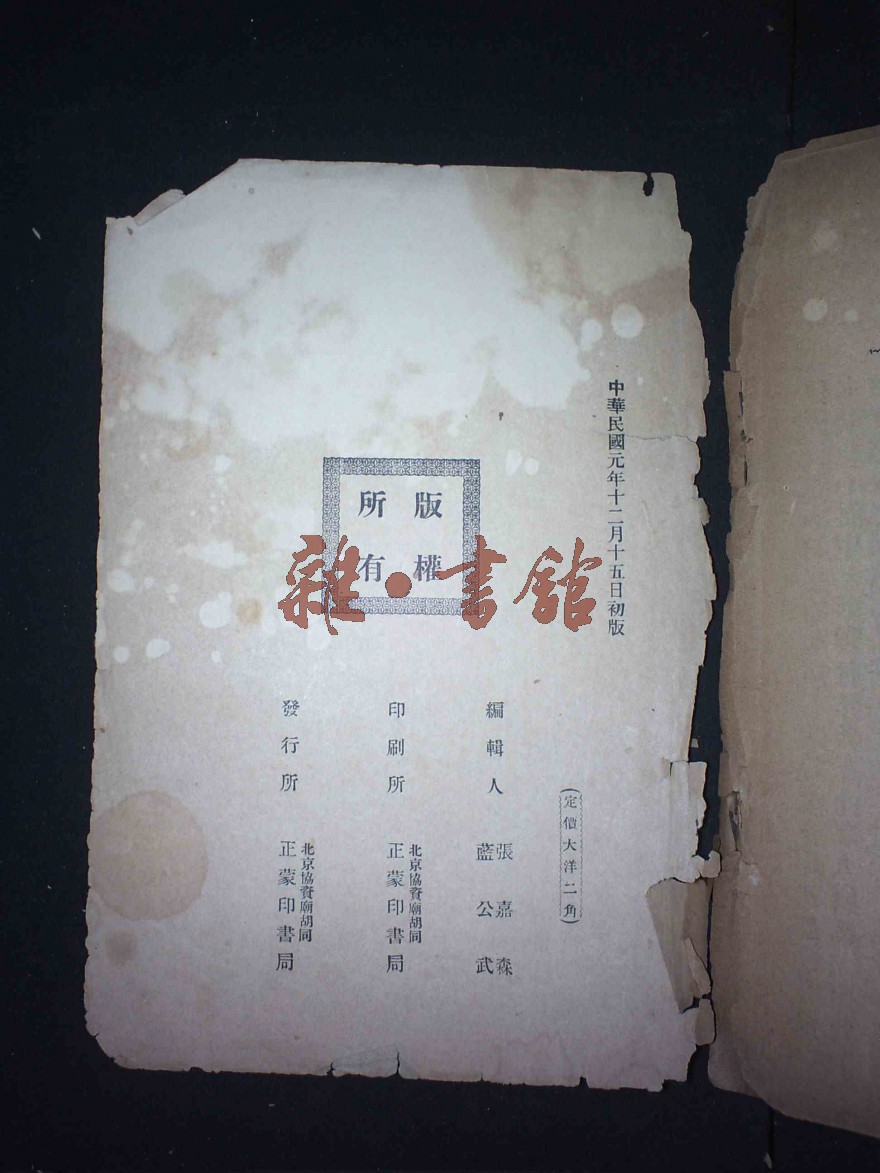 中華民國元年十二月十五日初版
(定價大洋二角)
編輯人 張嘉森
藍公武
印刷所 北京協資廟胡同
正蒙印書局
發行所 北京協資廟胡同
正蒙印書局
版權
所有
雜·書館